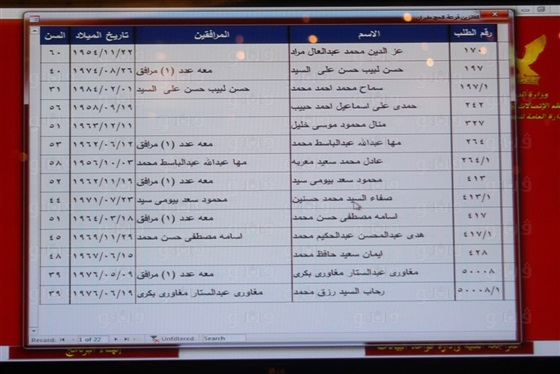 رقم الطلب الاسم المرافقين تاريخ الميلاد السن
١٧٠ عز الدين محمد عبدالعال مراد ١٩٥٤/١١/٢٢ ٦٠
١٩٧ حسن لبيب حسن على السيد معه عدد (١) مرافق ١٩٧٤/٠٨/٢٦ ٤٠
١٩٧/١ سماح محمد احمد محمد حسن لبيب حسن على السيد ١٩٨٤/٠٢/٠١ ٣١
٢٤٢ حمدى على اسماعيل احمد حبيب ١٩٥٨/٠٩/١٩ ٥٦
٣٢٧ منال محمود موسى خليل ١٩٦٣/١٢/١١ ٥١
٢٦٤ مها عبدالله عبدالباسط محمد معه عدد (١) مرافق ١٩٦٢/٠٦/١٢ ٥٣
٢٦٤/١ عادل محمد سعيد مها عبدالله عبدالباسط محمد ١٩٥٦/١٠/٠٣ ٥٨
٤١٣ محمود سعد بيومى سيد معه عدد (١) مرافق ١٩٦٢/١١/١٩ ٥٢
٤١٣/١ صفاء السيد محمد حسنين محمود سعد بيومى سيد ١٩٧١/٠٧/٢٣ ٤٤
٤١٧ اسامه مصطفى حسن محمد معه عدد (١) مرافق ١٩٦٤/٠٣/١٨ ٥١
٤١٧/١ هدى عبدالمحسن عبدالحكيم محمد اسامه مصطفى حسن محمد ١٩٦٩/١١/٢٩ ٤٥
٤٢٨ ايمان سعيد حافظ محمد ١٩٦٧/٠٦/١٥ ٤٨
٥٠٠٠٨ مغاورى عبدالستار مغاورى بكرى معه عدد (١) مرافق ١٩٧٦/٠٥/٠٩ ٣٩
٥٠٠٠٨/١ رحاب السيد رزق محمد مغاورى عبدالستار مغاورى بكرى ١٩٧٦/٠٦/١٩ ٣٩
Record: 1 of 22 Unfiltered Search